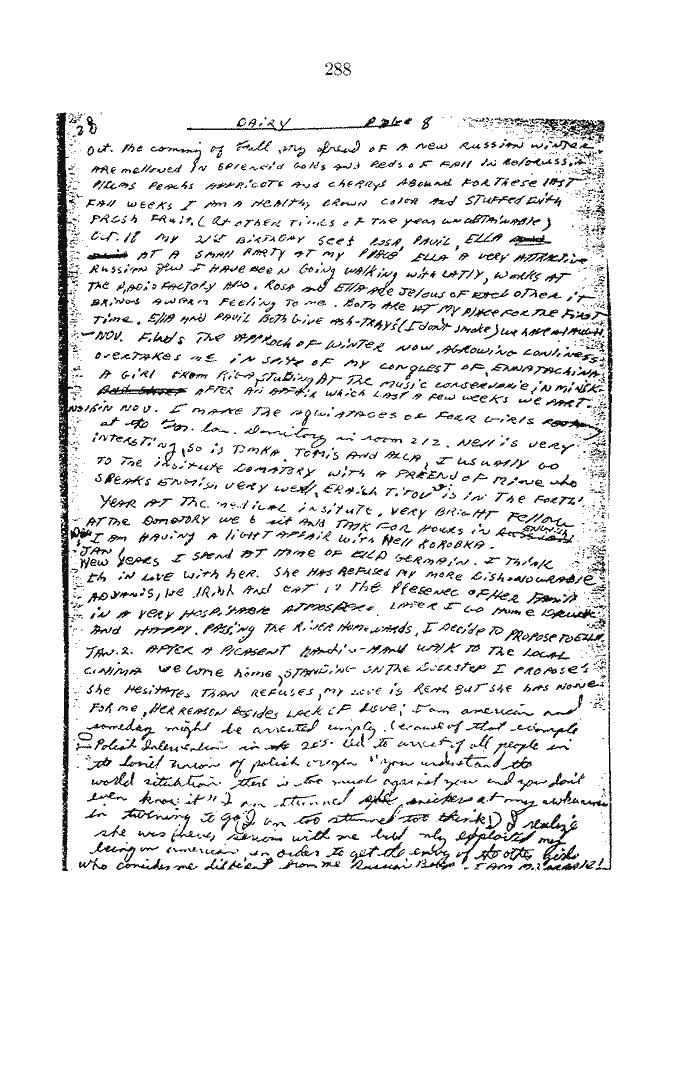 288
28 DAIRY PAGE 8
Oct. The coming of Fall, my dread of A NEW RUSSIAN WINTER
ARE mellowed IN SPLENDID Golds AND REDS OF FALL IN BELORUSSIA
PLUMS PEACHS APPRICOTS AND CHERRYS ABOUND FOR THESE LAST
FALL WEEKS I AM A HEALTHY BROWN COLOR AND STUFFED WITH
FRESH FRUIT. (AT OTHER TIMES OF THE YEAR UNOBTAINABLE)
Oct. 18 MY 21st BIRTHDAY SEES ROSA, PAVIL, ELLA
AT A SMALL PARTY AT MY PLACE ELLA A VERY ATTRACTIVE
RUSSIAN JEW I HAVE BEEN GOING WALKING WITH LATLY, WORKS AT
THE RADIO FACTORY ALSO. ROSA AND ELLA ARE JELOUS OF EACH OTHER IT
BRINGS A WARM FEELING TO ME. BOTH ARE AT MY PLACE FOR THE FIRST
TIME. ELLA AND PAVIL BOTH GIVE ASH-TRAYS (I don't smoke) WE HAVE A LAUGH.
NOV. FINDS THE APPROCH OF WINTER NOW. A GROWING LONLINESS
OVERTAKES ME IN SPITE OF MY CONQUEST OF ENNATACHINA
A GIRL FROM RIGA, STUDING AT THE MUSIC CONSERVORIE IN MINSK.
AFTER AN AFFAIR WHICH LAST A FEW WEEKS WE PART.
NOV 15 IN NOV. I MAKE THE AQUIATACES OF FOUR GIRLS
at the For. lan. Domitory in room 212. NELL IS VERY
INTERSTING, SO IS TOMKA, TOMIS AND ALLA, I USUALLY GO
TO THE INSTITUTE DOMATORY WITH A FRIEND OF MINE WHO
SPEAKS ENGLISH VERY WELL. ERAICH TITOV IS IN THE FORTH
YEAR AT THE MEDICAL INSITUTE, VERY BRIGHT FELLOW
AT THE DOMOTORY WE 6 SIT AND TALK FOR HOURS IN ENGLISH
I AM HAVING A LIGHT AFFAIR WITH NELL KOROBKA.
JAN 1
NEW YEARS I SPEND AT HOME OF ELLA GERMAIN. I THINK
I'm IN LOVE WITH HER. SHE HAS REFUSED MY MORE DISHONOURABLE
ADVANIS, WE DRINK AND EAT IN THE PRESENCE OF HER FAMILY
IN A VERY HOSPITABLE ATMOSFERE. LATER I GO HOME DRUNK
AND HAPPY. PASSING THE RIVER HOMEWARDS, I DECIDE TO PROPOSE TO ELLA.
JAN. 2. AFTER A PLEASENT HANDIN-HAND WALK TO THE LOCAL
CINIMA WE COME HOME, STANDING ON THE DOORSTEP I PROPOSE'S
SHE HESITATES THAN REFUSES, MY LOVE IS REAL BUT SHE HAS NONE
FOR ME, HER REASON BESIDES LACK OF LOVE; I am american and
someday might be arrested simply because of that example
Polish Intervention in the 20's. led to arrest of all people in
the Soviet Union of polish oregin "you understand the
world situation there is too much against you and you don't
even know it" I am stunned she snickers at my awkarness
in turning to go (I am too stunned too think!) I realize
she was never serious with me but only exploited my
being an american, in order to get the envy of the other girls
who considers me different from the Russian Boys. I AM MISARABLE!